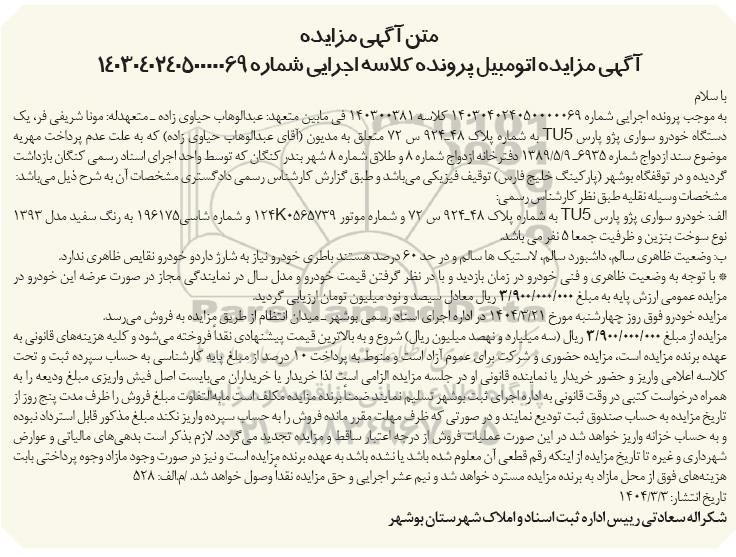 متن آگهی مزایده
آگهی مزایده اتومبیل پرونده کلاسه اجرایی شماره ۱۴۰۳۰۴۰۲۴۰۵۰۰۰۰۰۶۹
با سلام
به موجب پرونده اجرایی شماره ۱۴۰۳۰۴۰۲۴۰۵۰۰۰۰۰۶۹ کلاسه ۱۴۰۳۰۰۳۸۱ فی مابین متعهد: عبدالوهاب حیاوی زاده ـ متعهدله: مونا شریفی فر، یک
دستگاه خودرو سواری پژو پارس TU5 به شماره پلاک ۴۸ـ۹۲۴ س ۷۲ متعلق به مدیون (آقای عبدالوهاب حیاوی زاده) که به علت عدم پرداخت مهریه
موضوع سند ازدواج شماره ۶۹۳۵ـ ۱۳۸۹/۵/۹ دفترخانه ازدواج شماره ۸ و طلاق شماره ۸ شهر بندر کنگان که توسط واحد اجرای اسناد رسمی کنگان بازداشت
گردیده و در توقفگاه بوشهر (پارکینگ خلیج فارس) توقیف فیزیکی می‌باشد و طبق گزارش کارشناس رسمی دادگستری مشخصات آن به شرح ذیل می‌باشد:
مشخصات وسیله نقلیه طبق نظر کارشناس رسمی:
الف: خودرو سواری پژو پارس TU5 به شماره پلاک ۴۸ـ۹۲۴ س ۷۲ و شماره موتور ۱۲۴K۰۵۶۵۷۳۹ و شماره شاسی۱۹۶۱۷۵ به رنگ سفید مدل ۱۳۹۳
نوع سوخت بنزین و ظرفیت جمعا ۵ نفر می باشد.
ب: وضعیت ظاهری سالم، داشبورد سالم، لاستیک ها سالم و در حد ۶۰ درصد هستند باطری خودرو نیاز به شارژ داردو خودرو نقایص ظاهری ندارد.
* با توجه به وضعیت ظاهری و فنی خودرو در زمان بازدید و با در نظر گرفتن قیمت خودرو و مدل سال در نمایندگی مجاز در صورت عرضه این خودرو در
مزایده عمومی ارزش پایه به مبلغ ۳/۹۰۰/۰۰۰/۰۰۰ ریال معادل سیصد و نود میلیون تومان ارزیابی گردید.
مزایده خودرو فوق روز چهارشنبه مورخ ۱۴۰۴/۳/۲۱ در اداره اجرای اسناد رسمی بوشهر ـ میدان انتظام از طریق مزایده به فروش می‌رسد.
مزایده از مبلغ ۳/۹۰۰/۰۰۰/۰۰۰ ریال (سه میلیارد و نهصد میلیون ریال) شروع و به بالاترین قیمت پیشنهادی نقداً فروخته می‌شود و کلیه هزینه‌های قانونی به
عهده برنده مزایده است، مزایده حضوری و شرکت برای عموم آزاد است و منوط به پرداخت ۱۰ درصد از مبلغ پایه کارشناسی به حساب سپرده ثبت و تحت
کلاسه اعلامی واریز و حضور خریدار یا نماینده قانونی او در جلسه مزایده الزامی است لذا خریدار یا خریداران می‌بایست اصل فیش واریزی مبلغ ودیعه را به
همراه درخواست کتبی در وقت قانونی به اداره اجرای ثبت بوشهر تسلیم نمایند ضمناً برنده مزایده مکلف است مابه‌التفاوت مبلغ فروش را ظرف مدت پنج روز از
تاریخ مزایده به حساب صندوق ثبت تودیع نمایند و در صورتی که ظرف مهلت مقرر مانده فروش را به حساب سپرده واریز نکند مبلغ مذکور قابل استرداد نبوده
و به حساب خزانه واریز خواهد شد در این صورت عملیات فروش از درجه اعتبار ساقط و مزایده تجدید می‌گردد. لازم بذکر است بدهی‌های مالیاتی و عوارض
شهرداری و غیره تا تاریخ مزایده از اینکه رقم قطعی آن معلوم شده باشد یا نشده باشد به عهده برنده مزایده است و نیز در صورت وجود مازاد وجوه پرداختی بابت
هزینه‌های فوق از محل مازاد به برنده مزایده مسترد خواهد شد و نیم عشر اجرایی و حق مزایده نقداً وصول خواهد شد. /م‌الف: ۵۲۸
تاریخ انتشار: ۱۴۰۴/۳/۳
شکراله سعادتی رییس اداره ثبت اسناد و املاک شهرستان بوشهر